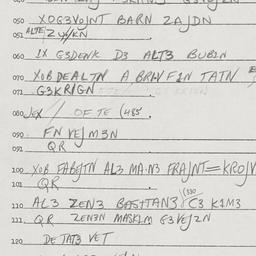 050 XOG3VOJNT BARN ZAJDN
051 ALTE ZY/KN
060 1X G3DENK D3 ALT3 BUB1N
070 XOB DEALTN A BRIV F1N TATN
071 G3KRIGN
080 JEX / OF TE (485.
090 FN VEJM3N
091 QR
100 XOB FABEJTN AL3 MA.N3 FRAJNT=KROJV
101 QR
110 AL3 ZEN3 BAS+TAN3 (330 C3 K1M3
111 QR ZEN3N MASK1M G3VEJ2N
120 DE TAT3 VET